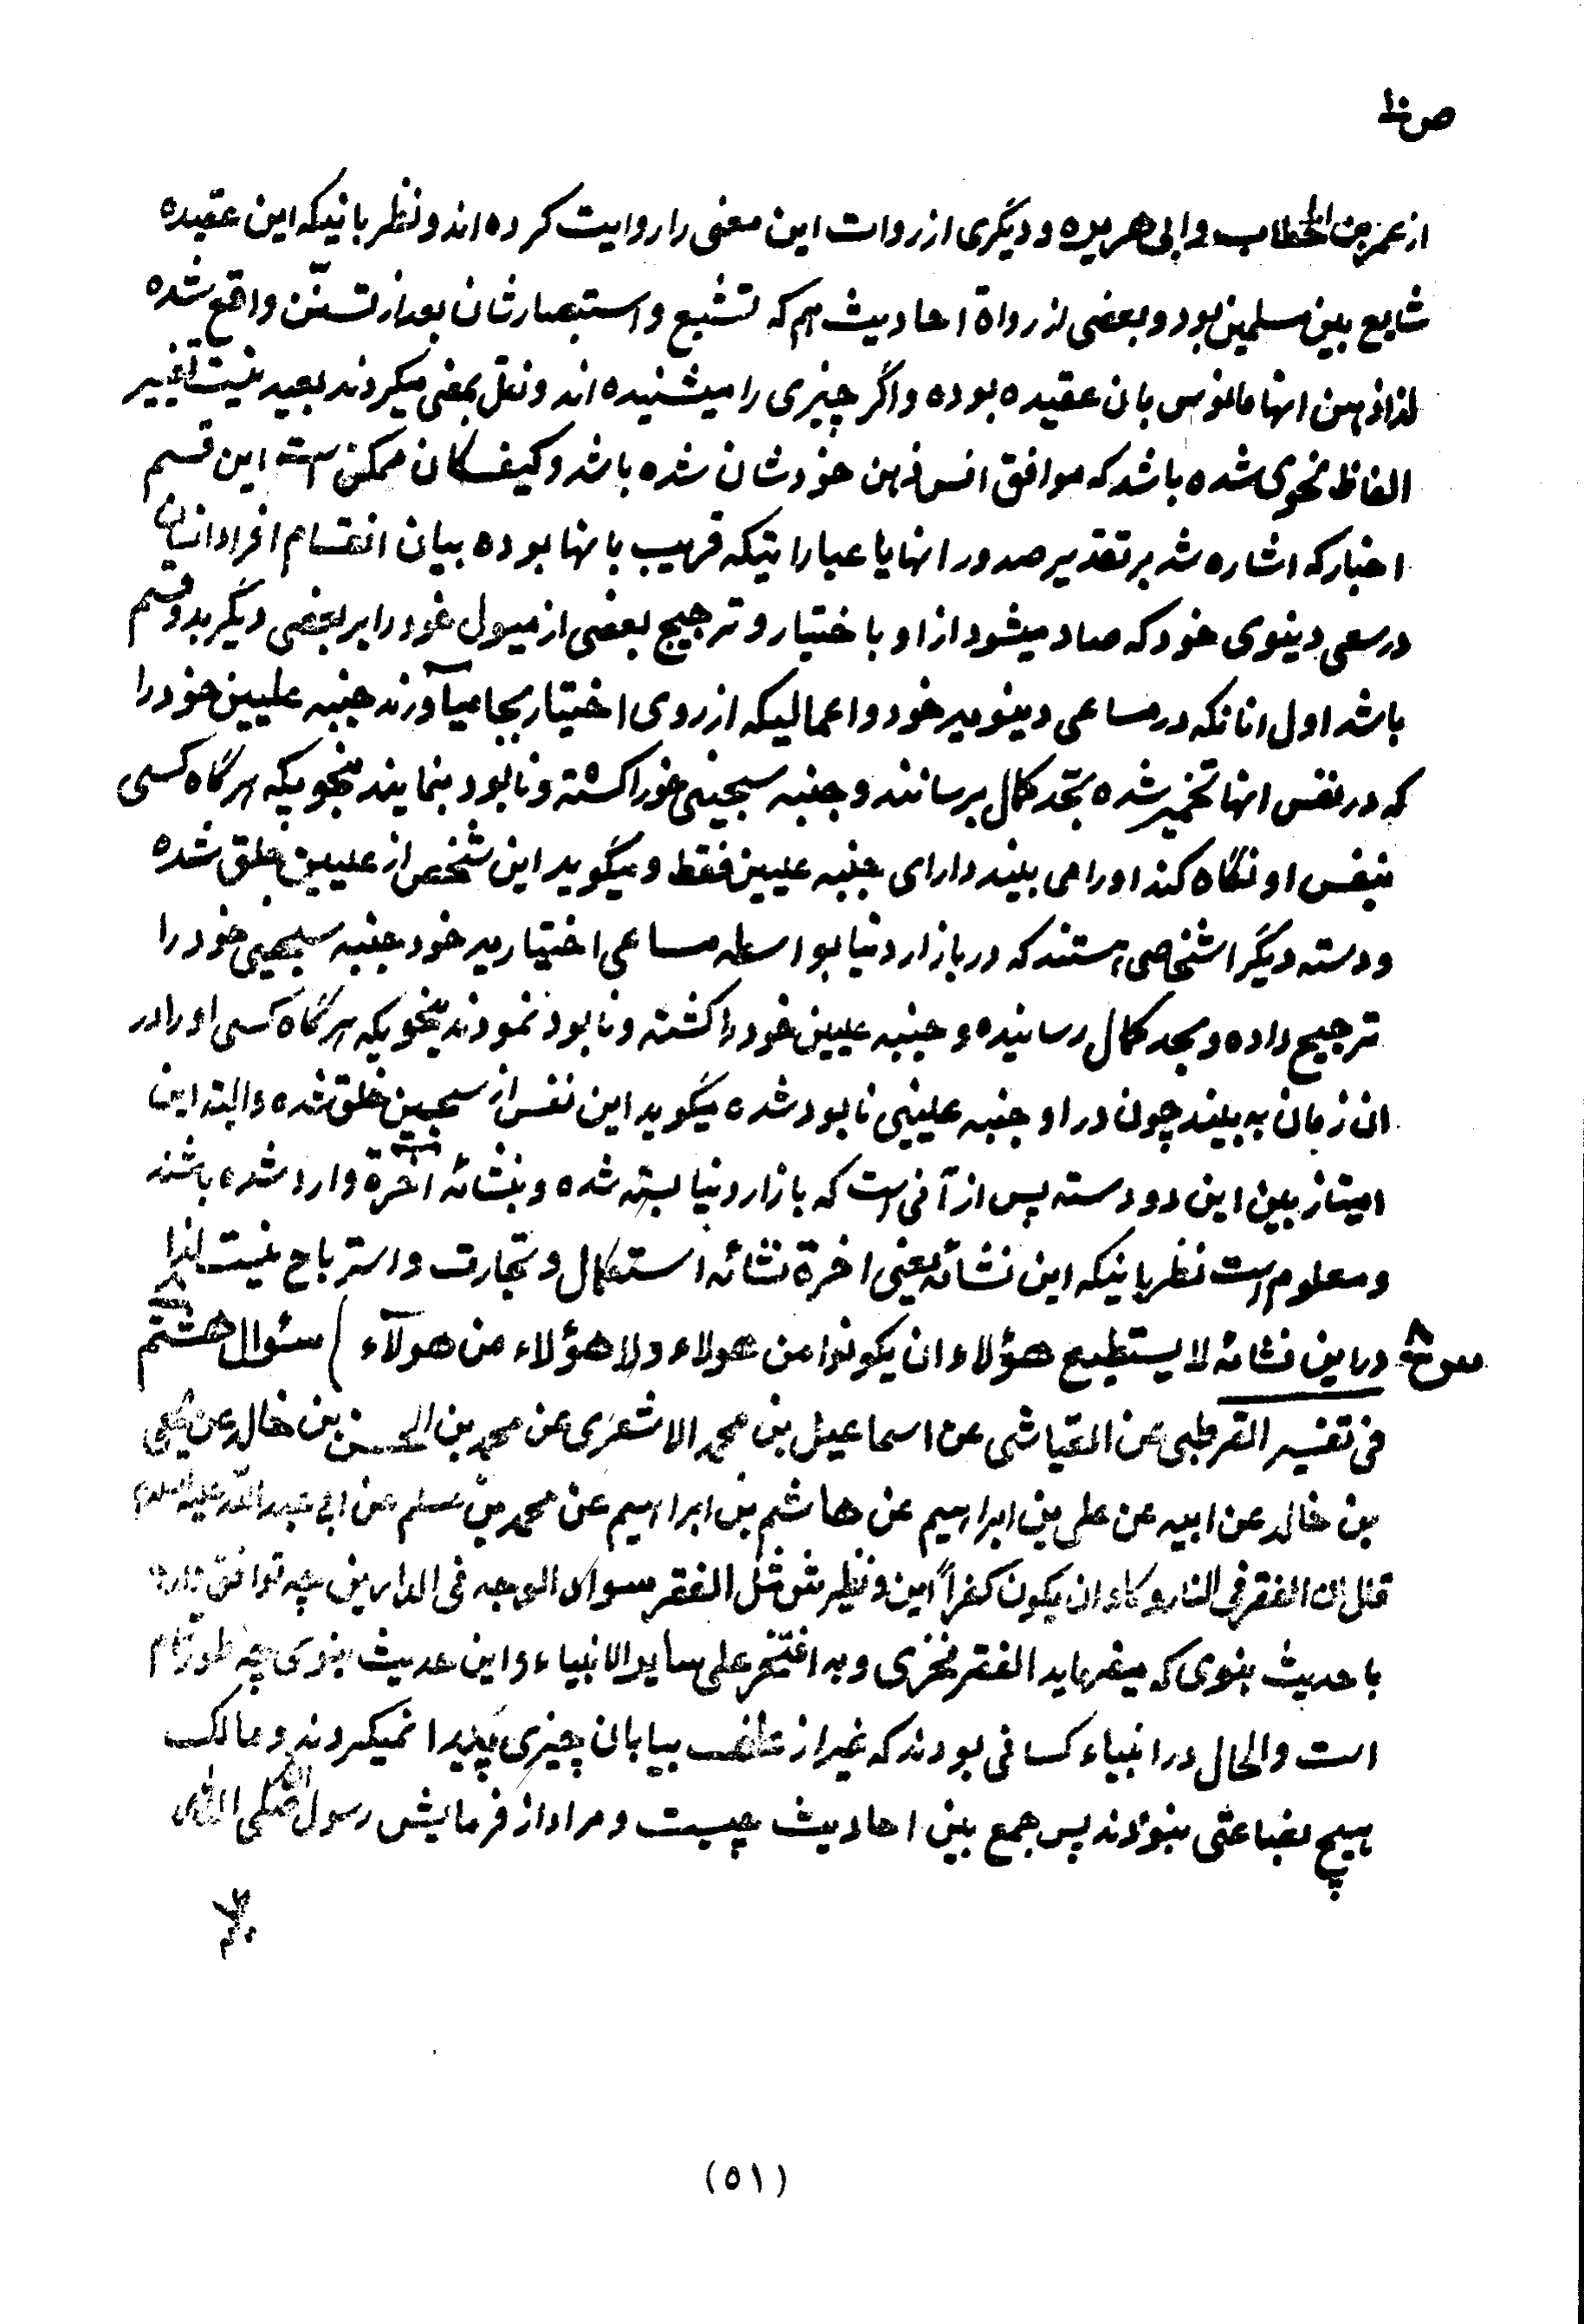 ص ۱۰
از عمر بن الخطاب و ابی هریره و دیگری از روات این معنی را روایت کرده اند و نظر بانیکه این عقیده
شایع بین مسلمین بود و بعضی از رواة احادیث هم که تشیع و استبصارشان بعد از تسنّن واقع شده
لذا ذهن انها مانوس بان عقیده بوده و اگر چیزی را میشنیده اند و نقل بمعنی میکردند بعید نیست تغییر
الفاظ نحوی شده باشد که موافق انس ذهن خودشان شده باشد و کیف کان ممکن است این قسم
اخبار که اشاره شد بر تقدیر صدور انها یا عباراتیکه قریب بانها بوده بیان انقسام افراد انسان
در سعی دینوی خود که صاد میشود از او باختیار و ترجیح بعضی از میول خود را بر بعضی دیگر بدو قسم
باشد اول انانکه در مساعی دینویه خود و اعمالیکه از روی اختیار بجا میآورند جنبه علیین خود را
که در نفس انها تخمیر شده بحد کمال برسانند و جنبه سجینی خود را کشته و نابود بنمایند بنحویکه هرگاه کسی
بنفس او نگاه کند او را می بیند دارای جنبه علیین فقط و میگوید این شخص از علیین خلق شده
و دسته دیگر اشخاصی هستند که در بازار دنیا بواسطه مساعی اختیاریه خود جنبه سجینی خود را
ترجیح داده و بحد کمال رسانیده و جنبه علیین خود را کشته و نابود نمودند بنحویکه هرگاه کسی او را در
ان زمان به بیند چون در او جنبه علیینی نابود شده میگوید این نفس از سجین خلق شده و البته این
امیتاز بین این دو دسته پس از آنی است که بازار دنیا بسته شده و بنشائه اخرة وارد شده باشند
و معلوم است نظر بانیکه این نشائه یعنی اخرة نشائه استکمال و تجارت و استرباح نیست لذا
س ۸ در این نشائه لا یستطیع هؤلاء ان یکونوا من هولاء ولا هؤلاء من هولآء ) سئوال هشتم ۸
فی تفسیر القرطبی عن العیاشی عن اسماعیل بن محمد الاشعری عن محمد بن الحسن بن خالد عن یحیی
بن خالد عن ابیه عن علی بن ابراهیم عن هاشم بن ابراهیم عن محمد بن مسلم عن ابی عبد الله علیه السلام
قال ان الفقر فی النار و کاد ان یکون کفراً این و نظیرش مثل الفقر سواد الوجه فی الدارین چه توافق دارد
با حدیث بنوی که میفرماید الفقر فخری و به افتخر علی سایر الانبیاء و این حدیث بنوی چه طور تام
است والحال در انبیاء کسانی بودند که غیر از علف بیابان چیزی پیدا نمیکردند و مالک
هیچ بضاعتی نبودند پس جمع بین احادیث چیست و مراد از فرمایش رسول الله صلی الله
(۵۱)